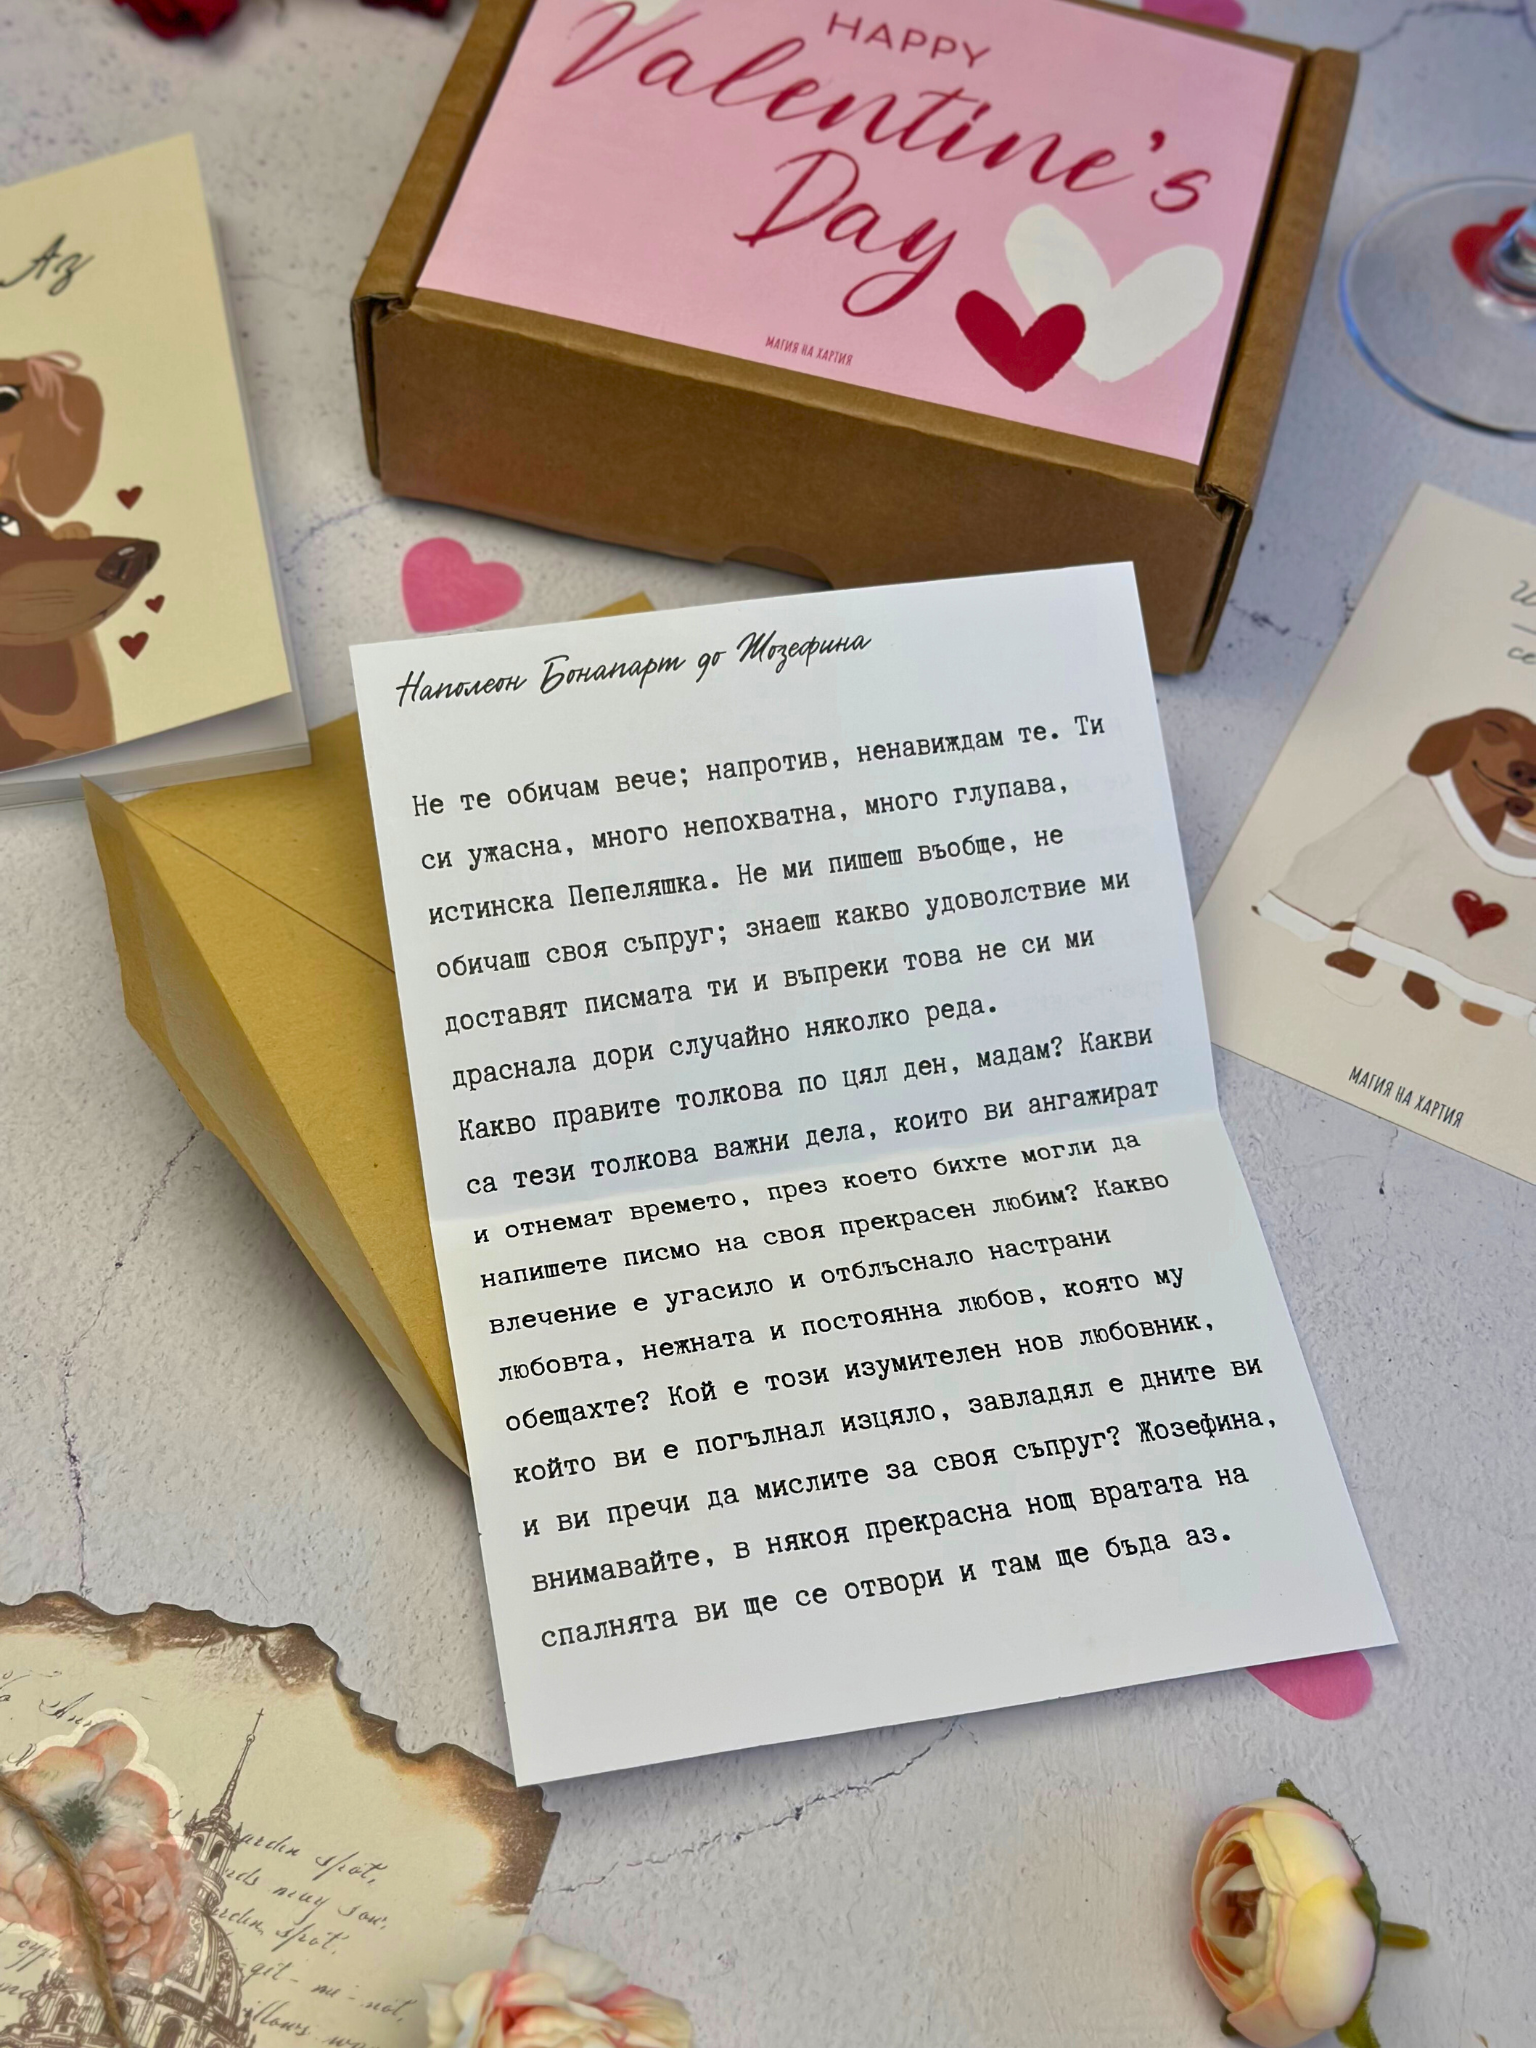 HAPPY
Valentine's
Day
МАГИЯ НА ХАРТИЯ
Аз
Наполеон Бонапарт до Жозефина
Не те обичам вече; напротив, ненавиждам те. Ти
си ужасна, много непохватна, много глупава,
истинска Пепеляшка. Не ми пишеш въобще, не
обичаш своя съпруг; знаеш какво удоволствие ми
доставят писмата ти и въпреки това не си ми
драснала дори случайно няколко реда.
Какво правите толкова по цял ден, мадам? Какви
са тези толкова важни дела, които ви ангажират
и отнемат времето, през което бихте могли да
напишете писмо на своя прекрасен любим? Какво
влечение е угасило и отблъснало настрани
любовта, нежната и постоянна любов, която му
обещахте? Кой е този изумителен нов любовник,
който ви е погълнал изцяло, завладял е дните ви
и ви пречи да мислите за своя съпруг? Жозефина,
внимавайте, в някоя прекрасна нощ вратата на
спалнята ви ще се отвори и там ще бъда аз.
МАГИЯ НА ХАРТИЯ
spot,
may sow,
spot,